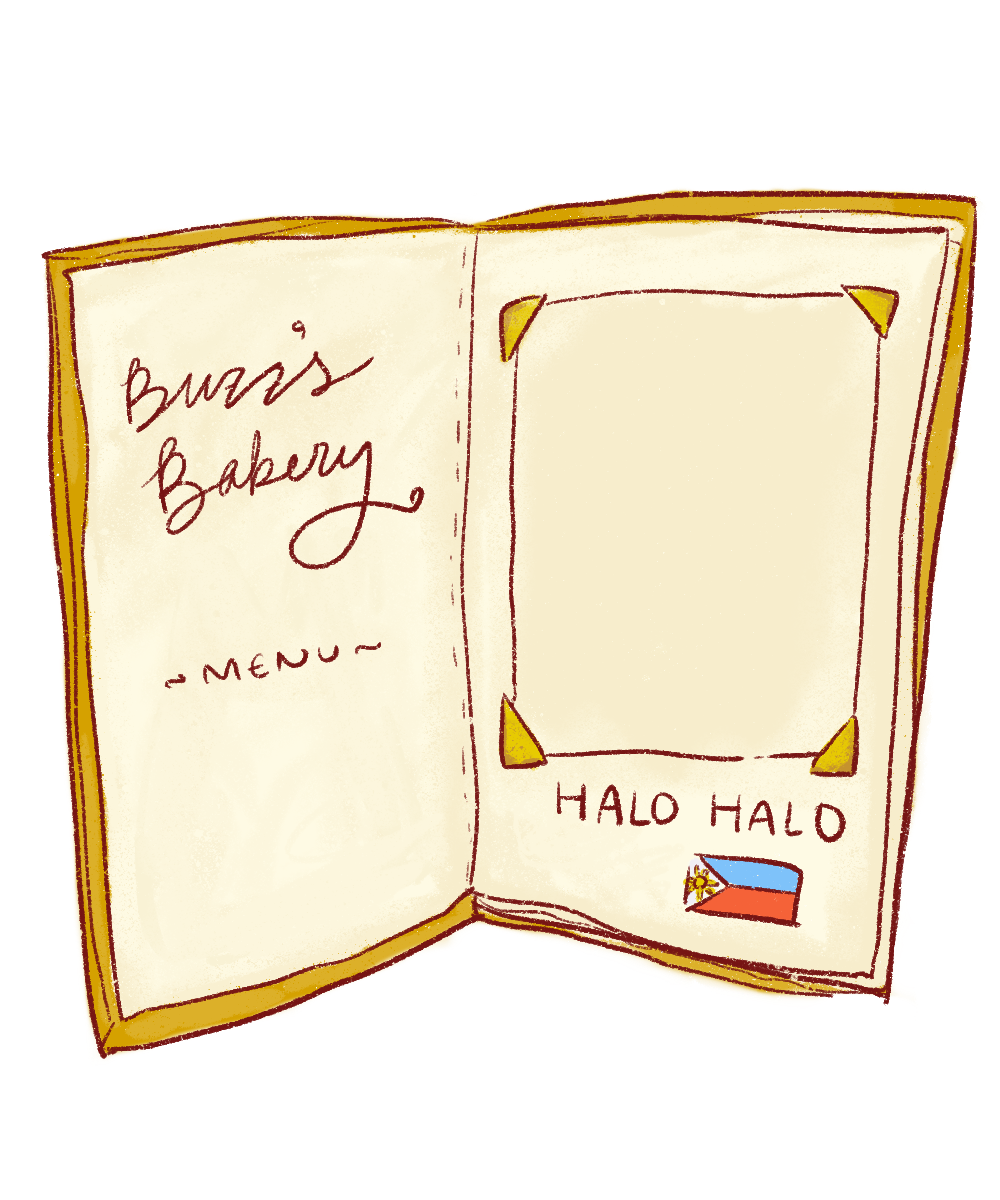 Buzz's
Bakery
~ MENU ~
HALO HALO